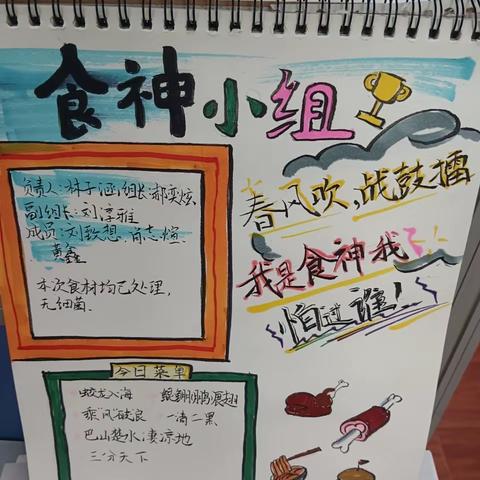 食神小组
负责人:林子涵,组长:郝奕炫
副组长:刘淳雅
成员:刘轶想、肖志煊、
黄鑫
本次食材均已处理,
无细菌.
春风吹,战鼓擂
我是食神我
怕过谁!
今日菜单
蛟龙入海
鲲鹏展翅
乘风破浪
一清二黑
巴山楚水凄凉地
三分天下